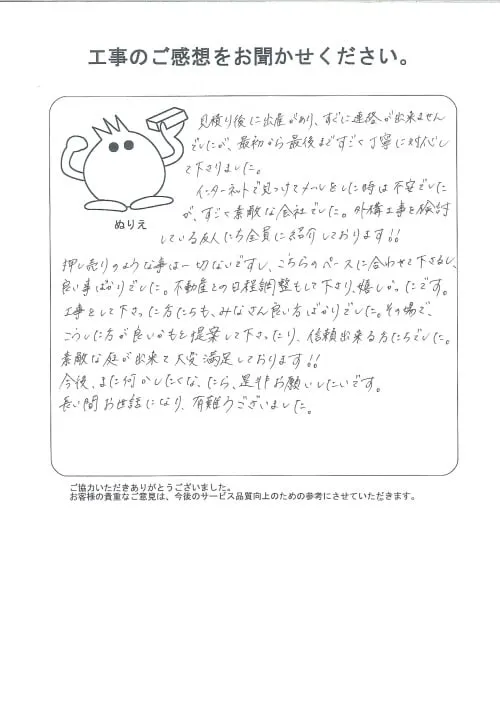 工事のご感想をお聞かせください。
見積り後に出産があり、すぐに連絡が出来ません
でしたが、最初から最後まですごく丁寧に対応し
て下さりました。
インターネットで見つけてメールをした時は不安でした
が、すごく素敵な会社でした。外構工事を検討
ぬりえ
している友人たち全員に紹介しております!!
押し売りのような事は一切ないですし、こちらのペースに合わせて下さるし、
良い事ばかりでした。不動産との日程調整もして下さり、嬉しかったです。
工事をして下さった方たちも、みなさん良い方ばかりでした。その場で、
こうした方が良いかもと提案して下さったり、信頼出来る方たちでした。
素敵な庭が出来て大変満足しております!!
今後、また何かしたくなったら、是非お願いしたいです。
長い間お世話になり、有難うございました。
ご協力いただきありがとうございました。
お客様の貴重なご意見は、今後のサービス品質向上のための参考にさせていただきます。